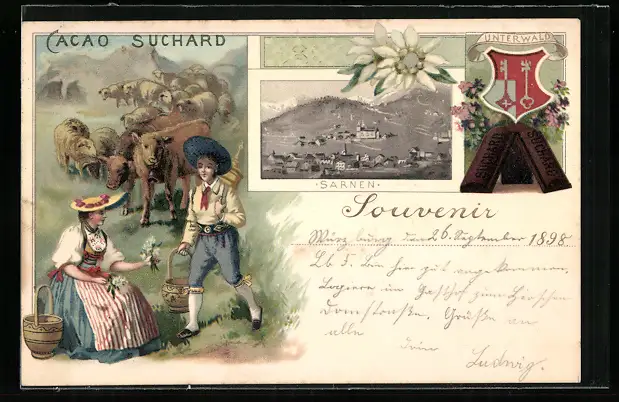 CACAO SUCHARD
UNTERWALD
SUCHARD
SUCHARD
SARNEN
Souvenir
Würzburg den 26. September 1898
Lb. S. Bin hier gut angekommen,
Logiere im Gasthof zum Hirschen
Domstraße. Grüße an
alle
Dein Ludwig.